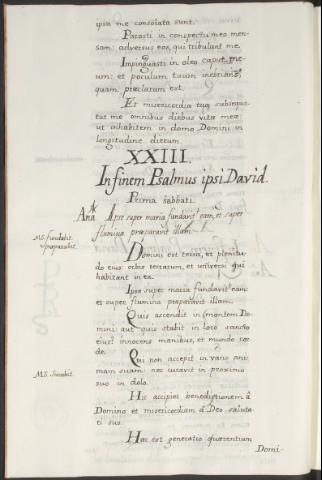 ipsa me consolata sunt.
Parasti in conspectu meo men-
sam: adversus eos, qui tribulant me.
Impinguasti in oleo caput me-
um: et poculum tuum inebrians
quam præclarum est.
Et misericordia tua subsequa-
tur me omnibus diebus vitæ meæ
ut inhabitem in domo Domini in
longitudine dierum.
XXIII.
In finem Psalmus ipsi David.
Prima sabbati.
Ana Ipse super maria fundavit eam, et super
flumina præparavit illam.
MS. fundabit
præparabit.
Domini est terra, et plenitu-
do eius: orbis terrarum, et universi qui
habitant in ea.
Ipse super maria fundavit eam:
et super flumina præparavit illam.
Quis ascendit in montem Do-
mini: aut quis stabit in loco sancto
eius? innocens manibus, et mundo cor-
de.
Qui non accepit in vano ani-
mam suam: nec iuravit in proximo
suo in dolo.
Hic accipiet benedictionem â
Domino et misericordiam â Deo saluta-
ri suo.
Hæc est generatio quærentium
Domi-